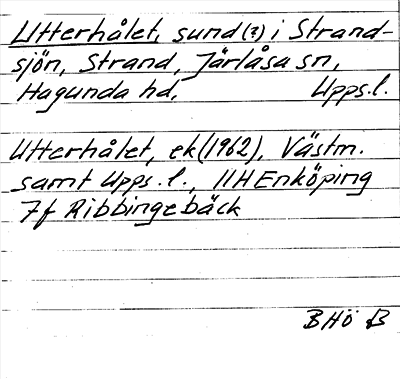 Utterhålet, sund(?) i Strand-
sjön, Strand, Järlåsa sn,
Hagunda hd, Upps.l.
Utterhålet, ek(1962), Västm.
samt Upps.l., 11H Enköping
7f Ribbingebäck
BHö B